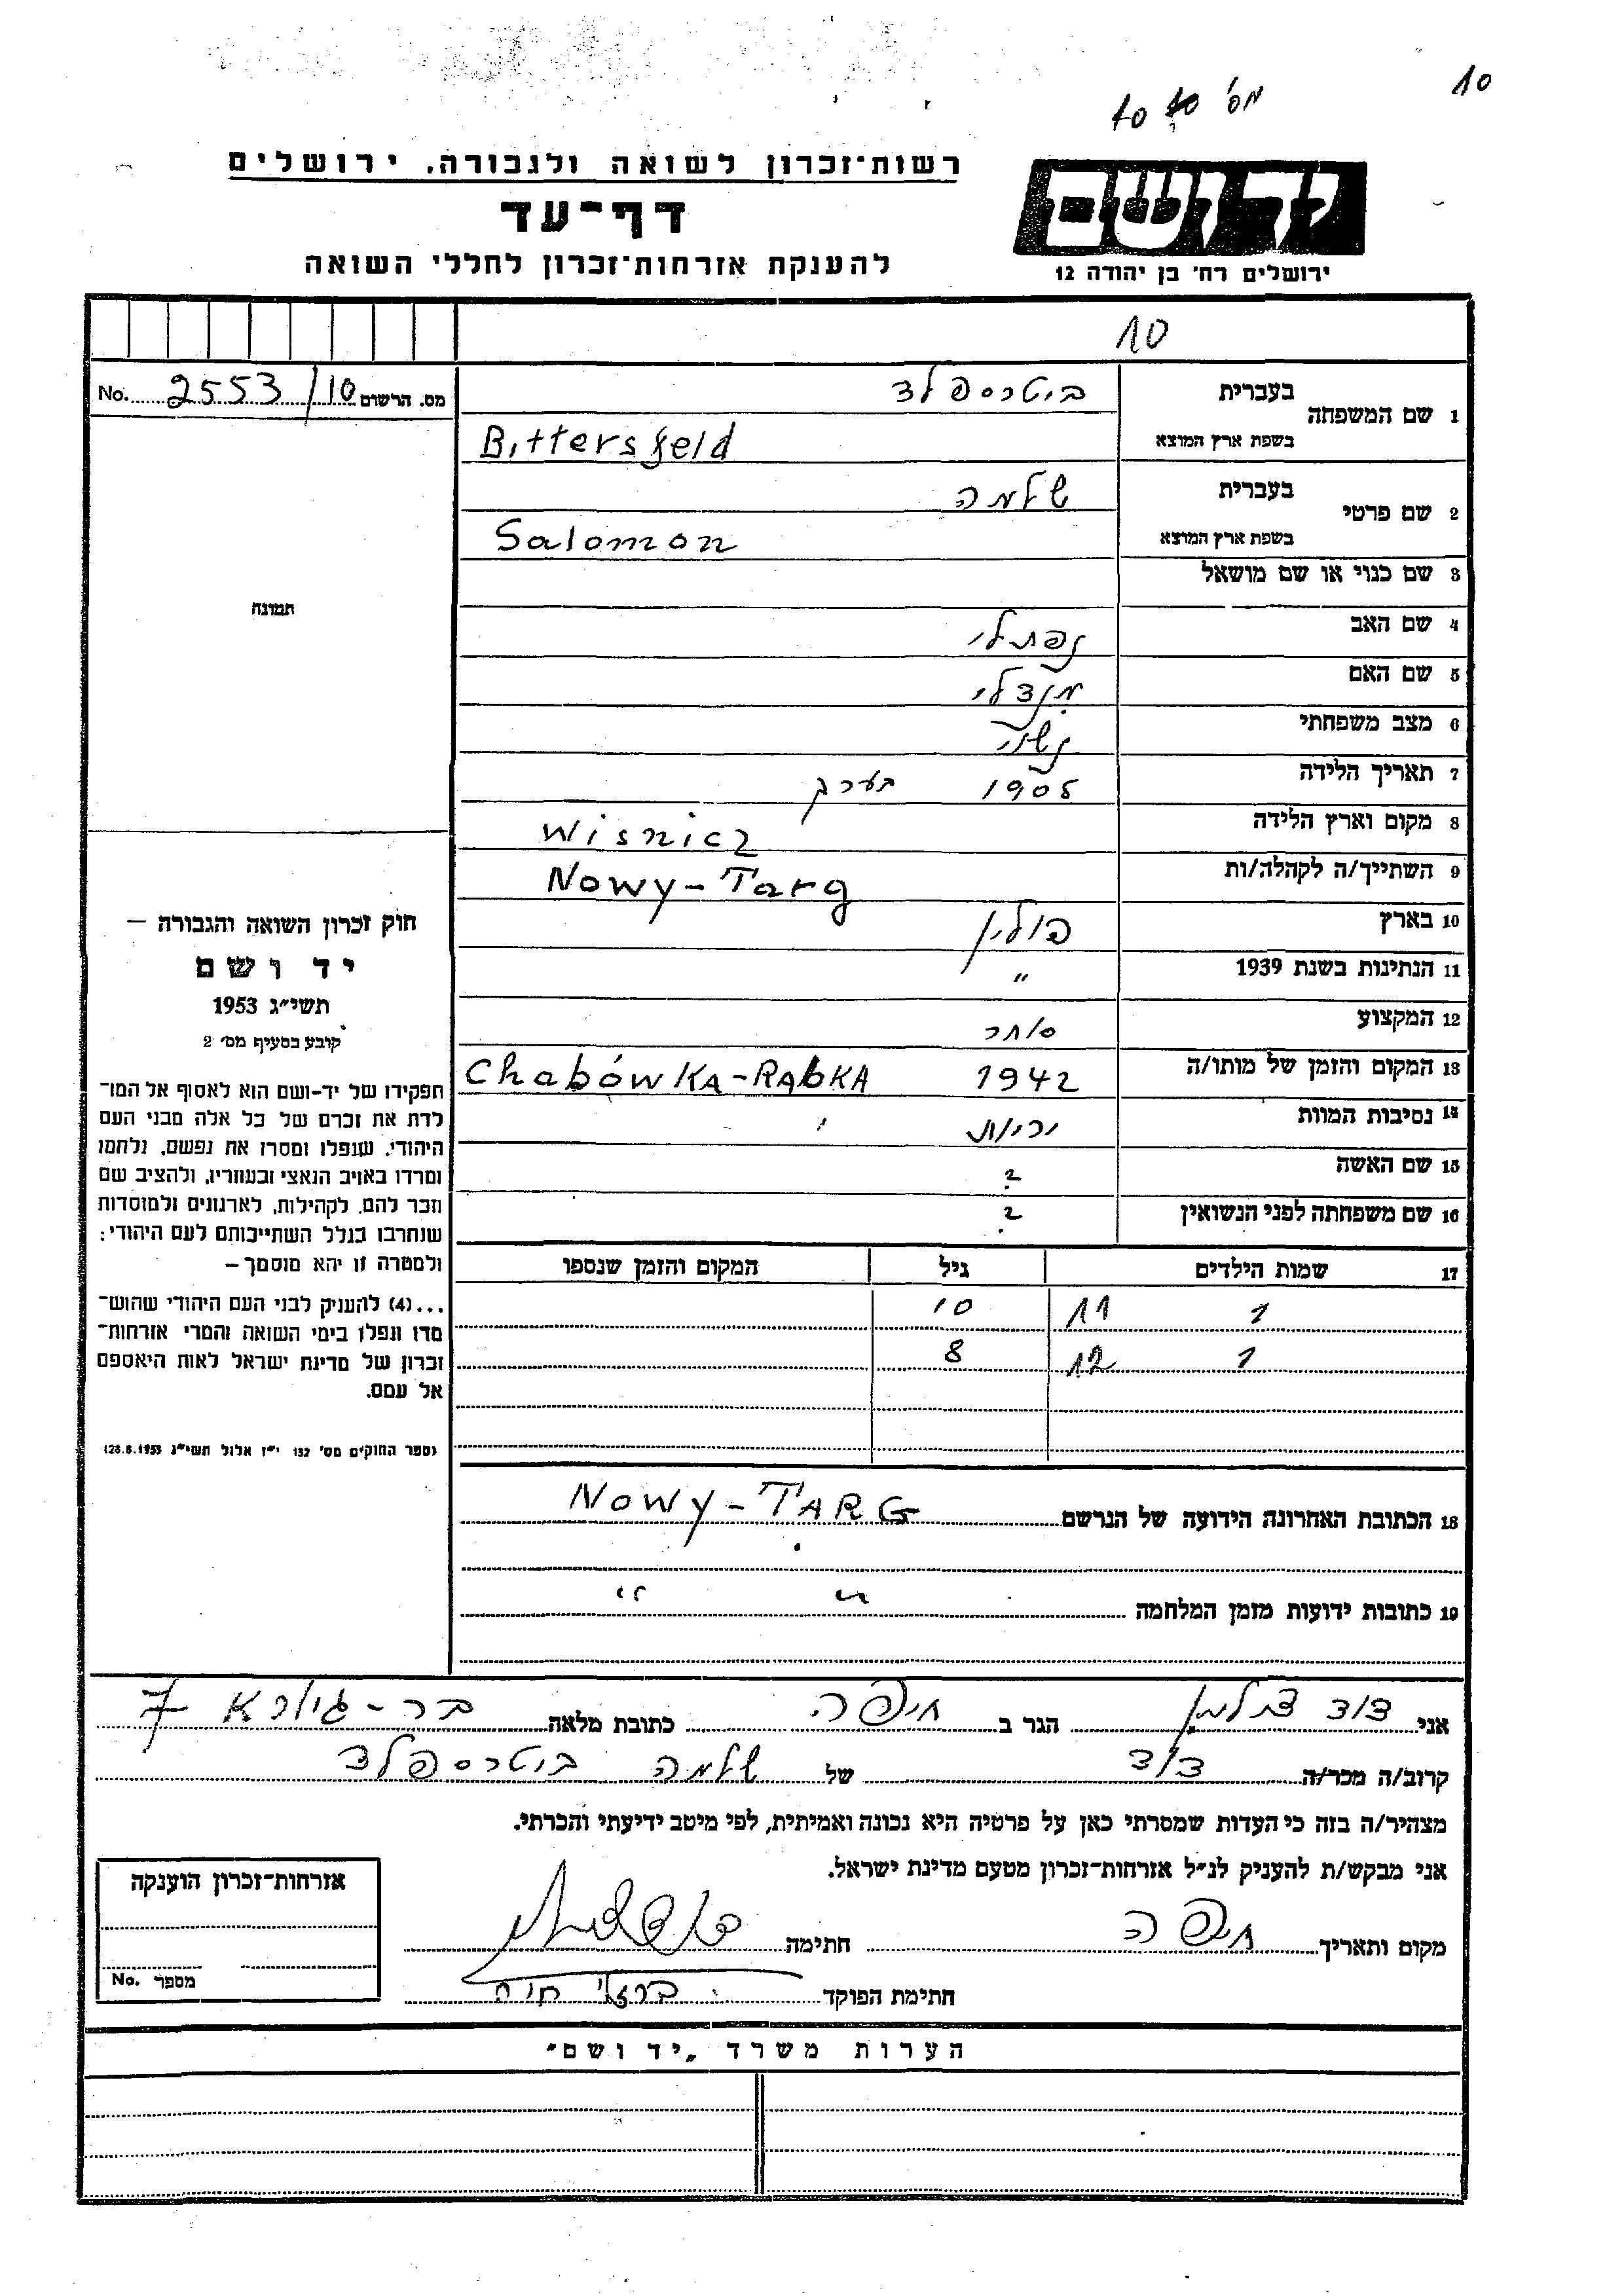 10
מס' 10 10
יד ושם
ירושלים רח' בן יהודה 12
רשות־זכרון לשואה ולגבורה. ירושלים
דף־עד
להענקת אזרחות־זכרון לחללי השואה
10
מס. הרשום 2553/10 No.
1 שם המשפחה
בעברית ביטרספלד
בשפת ארץ המוצא Bittersfeld
2 שם פרטי
בעברית שלמה
בשפת ארץ המוצא Salomon
3 שם כנוי או שם מושאל
4 שם האב נפתלי
5 שם האם מנדלי
6 מצב משפחתי נשוי
7 תאריך הלידה 1905 בערך
8 מקום וארץ הלידה Wisnicz
9 השתייך/ה לקהלה/ות Nowy-Targ
10 בארץ פולין
11 הנתינות בשנת 1939 "
12 המקצוע סוחר
13 המקום והזמן של מותו/ה 1942 Chabówka-Rabka
14 נסיבות המוות יריות
15 שם האשה ?
16 שם משפחתה לפני הנשואין ?
17 שמות הילדים גיל המקום והזמן שנספו
1 11 10
1 12 8
18 הכתובת האחרונה הידועה של הנרשם Nowy-TARG
19 כתובות ידועות מזמן המלחמה " "
תמונה
חוק זכרון השואה והגבורה –
יד ושם
תשי"ג 1953
קובע בסעיף מס' 2
תפקידו של יד-ושם הוא לאסוף אל המו־
לדת את זכרם של כל אלה מבני העם
היהודי, שנפלו ומסרו את נפשם, נלחמו
ומרדו באויב הנאצי ובעוזריו, ולהציב שם
וזכר להם, לקהילות, לארגונים ולמוסדות
שנחרבו בגלל השתייכותם לעם היהודי;
ולמטרה זו יהא מוסמך –
...(4) להעניק לבני העם היהודי שהוש־
מדו ונפלו בימי השואה והמרי אזרחות־
זכרון של מדינת ישראל לאות היאספם
אל עמם.
(ספר החוקים מס' 132 י"ז אלול תשי"ג 28.8.1953)
אני דוד הגר ב חיפה כתובת מלאה בר-גיורא 7
קרוב/ה מכר/ה דוד של שלמה ביטרספלד
מצהיר/ה בזה כי העדות שמסרתי כאן על פרטיה היא נכונה ואמיתית, לפי מיטב ידיעתי והכרתי.
אני מבקש/ת להעניק לנ"ל אזרחות-זכרון מטעם מדינת ישראל.
מקום ותאריך חיפה חתימה
חתימת הפוקד ברזלי חוה
אזרחות-זכרון הוענקה
מספר No.
הערות משרד „יד ושם"